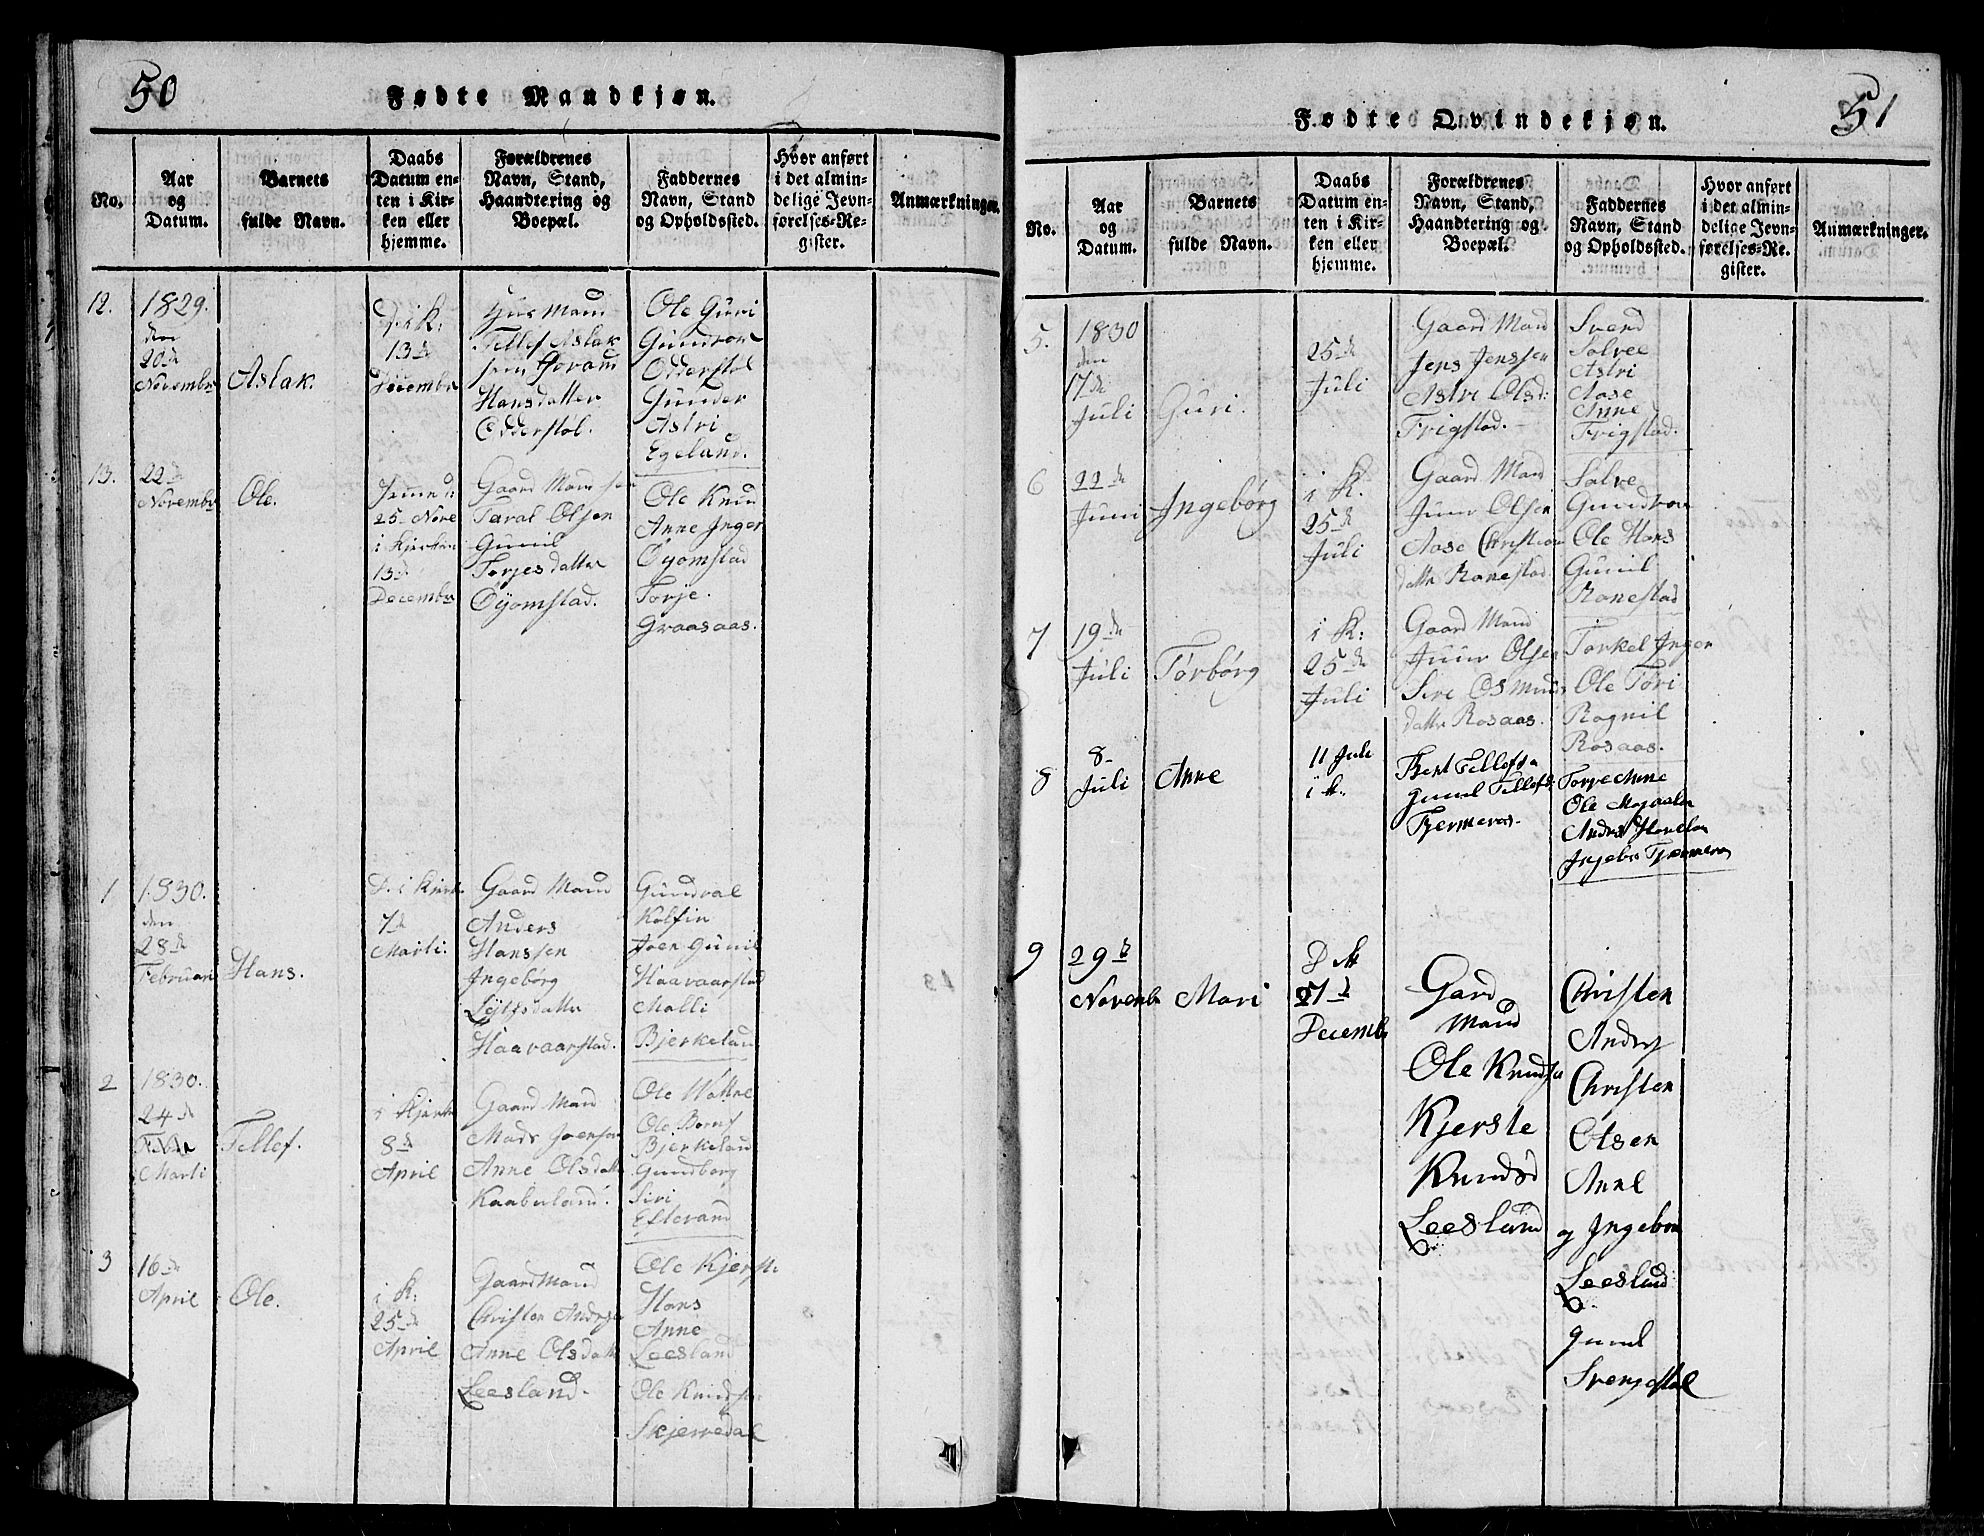 50
Fødte Mandkjøn.
No.
Aar
og
Datum.
Barnets
fulde Navn.
Daabs
Datum en-
ten i Kir-
ken eller
hjemme.
Forældrenes
Navn, Stand,
Haandtering og
Boepæl.
Faddernes
Navn, Stand
og Opholdssted.
Hvor anført
i det almin-
delige Jevn-
førelses-Re-
gister.
Anmærkninger.
12.
1829.
den
20de
Novembr
Aslak.
D. i K:
13de
Decembr
Huus Mand
Tellef Aslak
sen
Hansdatter
Odderstøl.
Ole Guri
Gundror
Odderstøl
Gunder
Astri
Egeland.
13.
22de
Novembr
Ole.
25 Nove
i Kjerken
13de
Decembr
Gaard Mand
Taral Olsen
Gunil
Torjesdatter
Øyomstad.
Ole Knud
Anne Inger
Øyomstad
Torje.
Graasaas.
1
1830.
den
28de
Februari
Hans.
D. i Kjerk.
7de
Marti.
Gaard Mand
Anders
Hanssen
Ingebørg
Haavaarstad.
Gundval
Kolfin
Joen Gunil
Haavaarstad
Malli
Bjerkelan
2
1830.
24de
Marti
Tellef.
i Kjerke
8de
April
Gaard Mand
Mads Joensen
Anne Olsdatter
Kaabuland.
Ole
Ole Bern
Bjerkelan
Gundborg
Siri
Eftevand
3
16de
April
Ole.
i K:
25de
April
Gaard Mand
Christen Andersen
Anne Olsdatter
Leesland.
Ole Kjerste
Hans
Anne
Leesland
Ole Knudsen
Skjerredal
51
Fødte Qvindekjøn.
No.
Aar
og
Datum.
Barnets
fulde Navn.
Daabs
Datum en-
ten i Kir-
ken eller
hjemme.
Forældrenes
Navn, Stand,
Haandtering og
Boepæl.
Faddernes
Navn, Stand
og Opholdssted.
Hvor anført
i det almin-
delige Jevn-
førelses-Re-
gister.
Anmærkninger.
5.
1830
den
17de
Juli
Guri.
25de
Juli
Gaard Mand
Jens Jenssen
Astri Olsd:
Frigstad.
Svend
Solvee
Astri
Aase
Anne
Frigstad.
6
22de
Juni
Ingebørg
i K.
25de
Juli
Gaard Mand
Juur Olsen
Aase Christian
datter Ronestad
Salve
Gundror
Ole Hans
Gunil
Ronestad
7
19de
Juli
Torbørg
i K:
25de
Juli
Gaard Mand
Juur Olsen
Sire Osmunds
datter Rosaas.
Torkel Inger
Ole Tori
Rognil
Rosaas.
8
8
Juli
Anne
11 Juli
i K.
Bent Tellefsen
Gunil Tellefsd.
Tjermeros.
Torje Anne
Ole
Anders
Ingebr
9
29de
Novemb
Mari
D K
Decemb
Gard
Mand
Ole Knudsen
Kjerste
Knudsd
Leesland
Christen
Anders
Christen
Olsen
Anne
og Ingebor
Leesland
Gunil